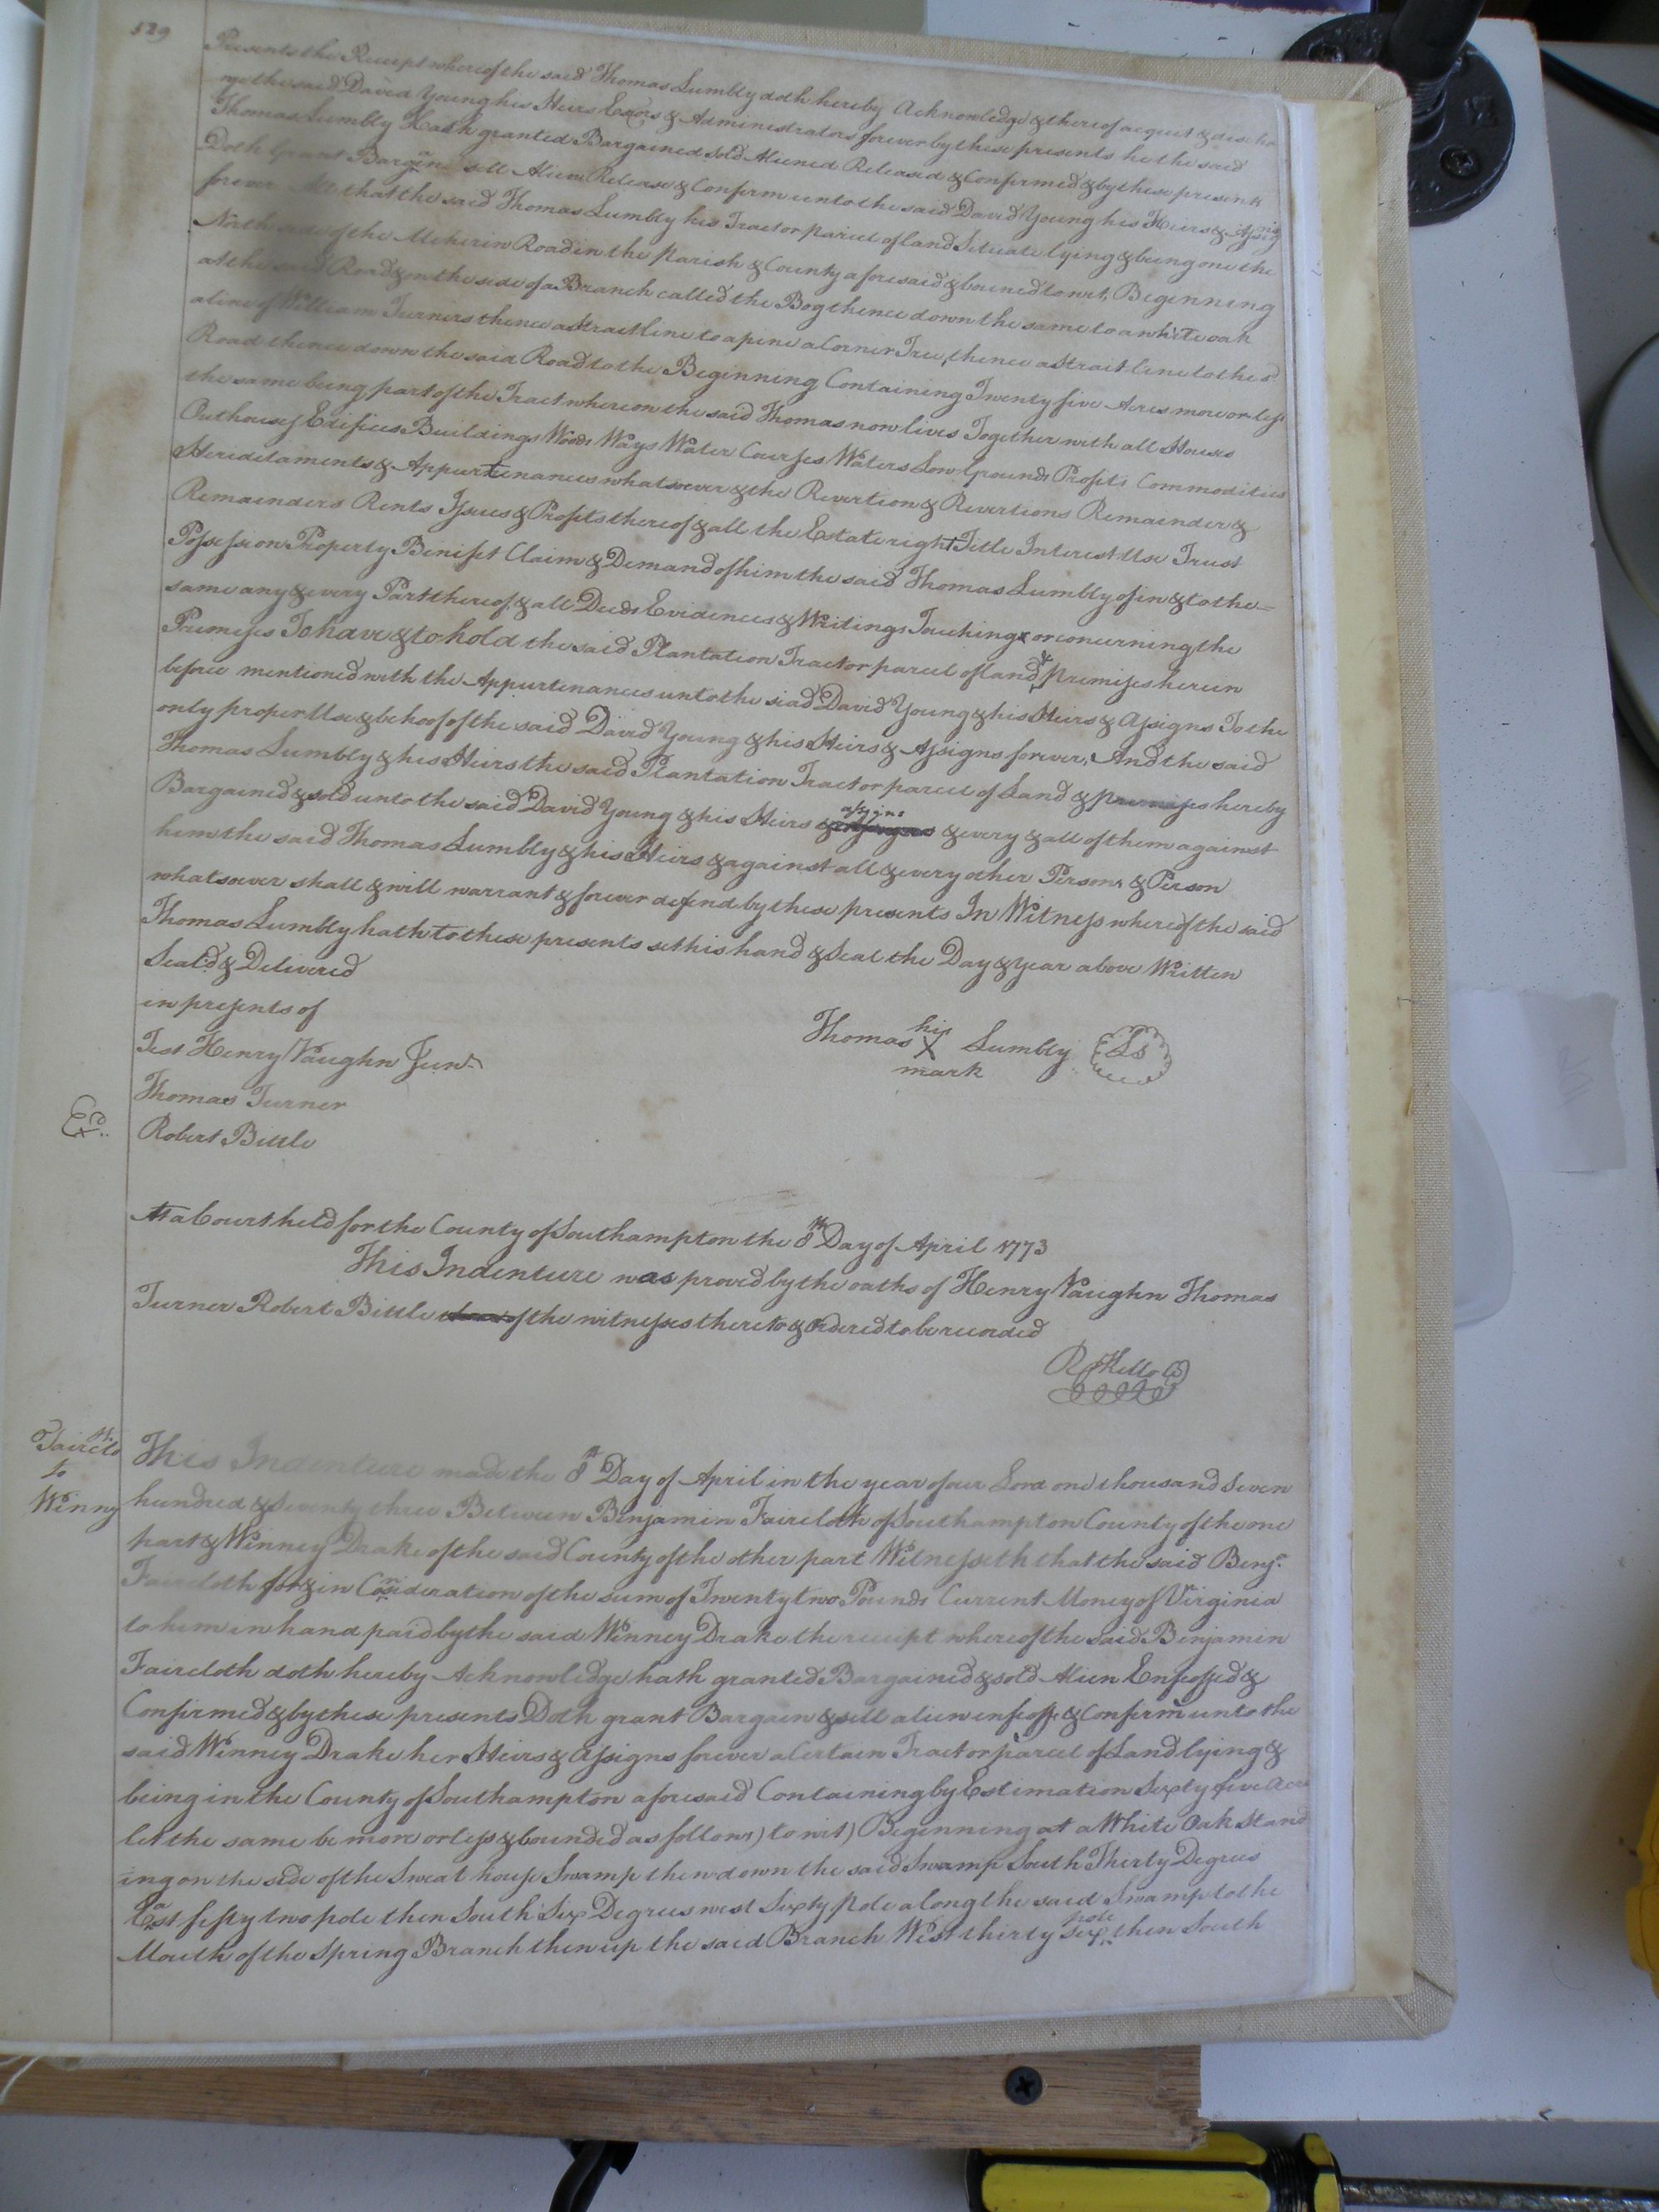 529
Presents the Receipt whereof the said Thomas Lumbly doth hereby Acknowledge & thereof acquit & discha
rge the said David Young his Heirs Exors & Administrators forever by these presents he the said
Thomas Lumbly Hath granted Bargained sold Aliened Released & Confirmed & by these presents
Doth Grant Bargain sell Alien Release & Confirm unto the said David Young his Heirs & Assigns
forever All that the said Thomas Lumbly his Tract or parcel of land Situate lying & being one the
North side of the Meherin Road in the Parish & County aforesaid & bouned to wit, Beginning
at the said Road & on the side of a Branch called the Bog thence down the same to a white oak
a line of William Turners thence a Strait line to a pine a Corner Tree, thence a Strait line to the sd
Road thence down the said Road to the Beginning Containing Twenty five Acres more or less
the same being part of the Tract whereon the said Thomas now lives Together with all Houses
Outhouses Edifices Buildings Woods Ways Water Courses Waters Low Grounds Profits Commodities
Hereditaments & Appurtenances whatsoever & the Revertion & Revertions Remainder &
Remainders Rents Issues & Profits thereof & all the Estate right Title Interest Use Trust
Possession Property Benifit Claim & Demand of him the said Thomas Lumbly of in & to the =
same any & every Part thereof & all Deeds Evidences & Writings Touching or concerning the
Premises To have & to hold the said Plantation Tract or parcel of land & premises herein
before mentioned with the Appurtenances unto the siad David Young & his Heirs & Assigns To the
only proper Use & behoof of the said David Young & his Heirs & Assigns forever, And the said
Thomas Lumbly & his Heirs the said Plantation Tract or parcel of Land & premises hereby
Bargained & sold unto the said David Young & his Heirs & assigns & every & all of them against
him the said Thomas Lumbly & his Heirs & against all & every other Persons & Person
whatsoever shall & will warrant & forever defend by these presents In Witness whereof the said
Thomas Lumbly hath to these presents set his hand & Seal the Day & year above Written
Seal'd & Delivered
in presents of
Thomas his X mark Lumbly Ls
Test Henry Vaughn Junr
Thomas Turner
Exd
Robert Bittle
At a Court held for the County of Southampton the 8th Day of April 1773
This Indenture was proved by the oaths of Henry Vaughn Thomas
Turner Robert Bittle of the witnesses thereto & ordered to be recorded
R Kello
Faircloth
to
Winny
This Indenture made the 8th Day of April in the year of our Lord one thousand Seven
hundred & Seventy three Between Benjamin Faircloth of Southampton County of the one
part & Winney Drake of the said County of the other part Witnesseth that the said Benj.
Faircloth for & in Consideration of the sum of Twenty two Pounds Current Money of Virginia
to him in hand paid by the said Winney Drake the receipt whereof the said Benjamin
Faircloth doth hereby Acknowledge hath granted Bargained & sold Alien Enfeoffed &
Confirmed & by these presents Doth grant Bargain & sell alien enfeoff & Confirm unto the
said Winney Drake her Heirs & Assigns forever a Certain Tract or parcel of Land lying &
being in the County of Southampton aforesaid Containing by Estimation Sixty five Acres
let the same be more or less & bounded as follows) to wit) Beginning at a White Oak Stand
ing on the side of the Sweat house Swamp then down the said Swamp South Thirty Degrees
East fifty two pole then South Six Degrees west Sixty Pole along the said Swamp to the
Mouth of the Spring Branch then up the said Branch West thirty six pole then South